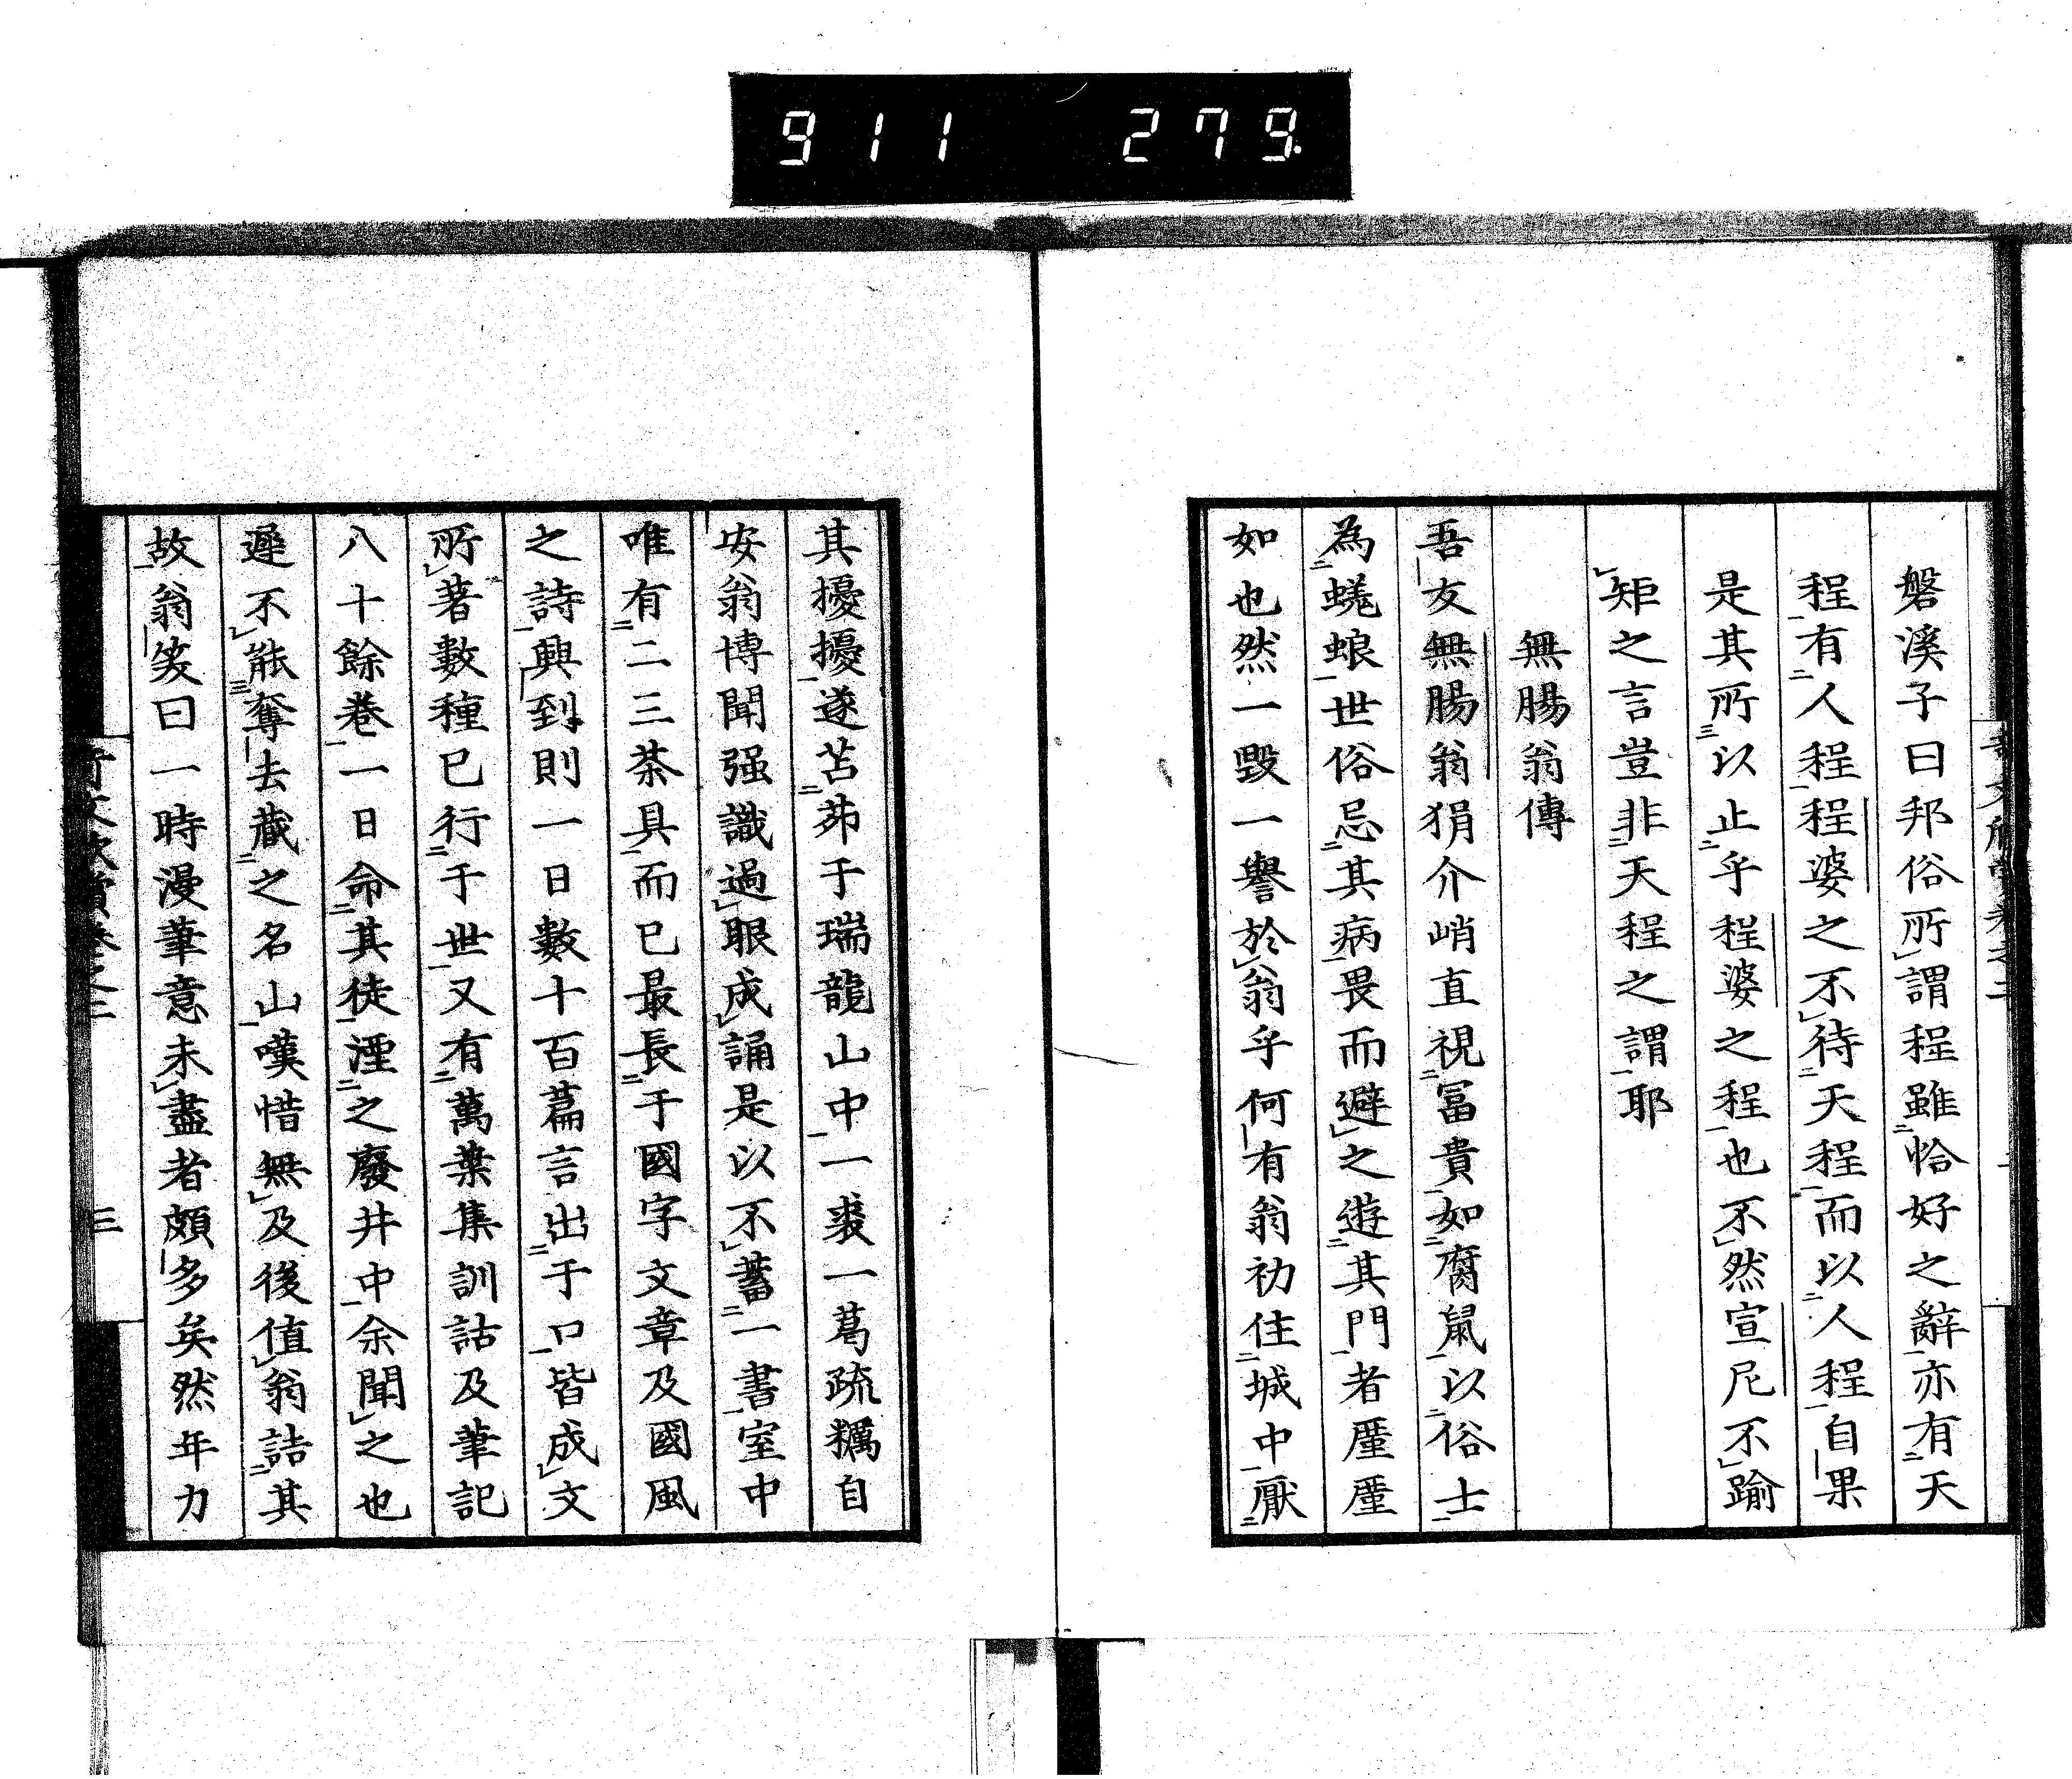 911 279
磐溪子曰邦俗所謂程雖恰好之辭亦有天
程有人程程婆之不待天程而以人程自果
是其所以止乎程婆之程也不然宣尼不踰
矩之言豈非天程之謂耶
無腸翁傳
吾友無腸翁狷介峭直視冨貴如腐鼠以俗士
為蜣蜋世俗忌其病畏而避之遊其門者厪厪
如也然一毀一譽於翁乎何有翁初住城中厭
其擾擾遂苫茆于瑞龍山中一裘一葛疏糲自
安翁博聞强識過眼成誦是以不蓄一書室中
唯有二三茶具而已最長于國字文章及國風
之詩興到則一日數十百篇言出于口皆成文
所著數種已行于世又有萬葉集訓詁及筆記
八十餘卷一日命其徒湮之廢井中余聞之也
遲不能奪去藏之名山嘆惜無及後值翁詰其
故翁笑曰一時漫筆意未盡者頗多矣然年力
三